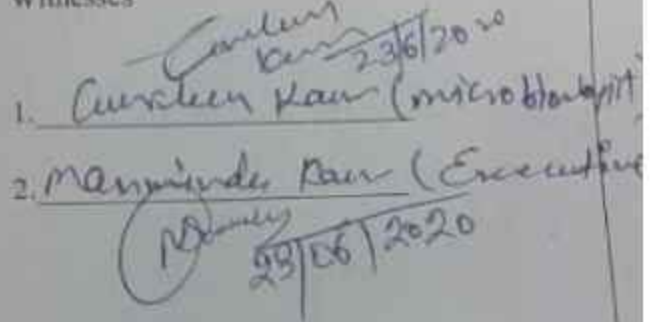 Witnesses
23/6/2020
1. Gursleen Kaur (microbiologist
2. Manminder Kaur (Executive
23/06/2020